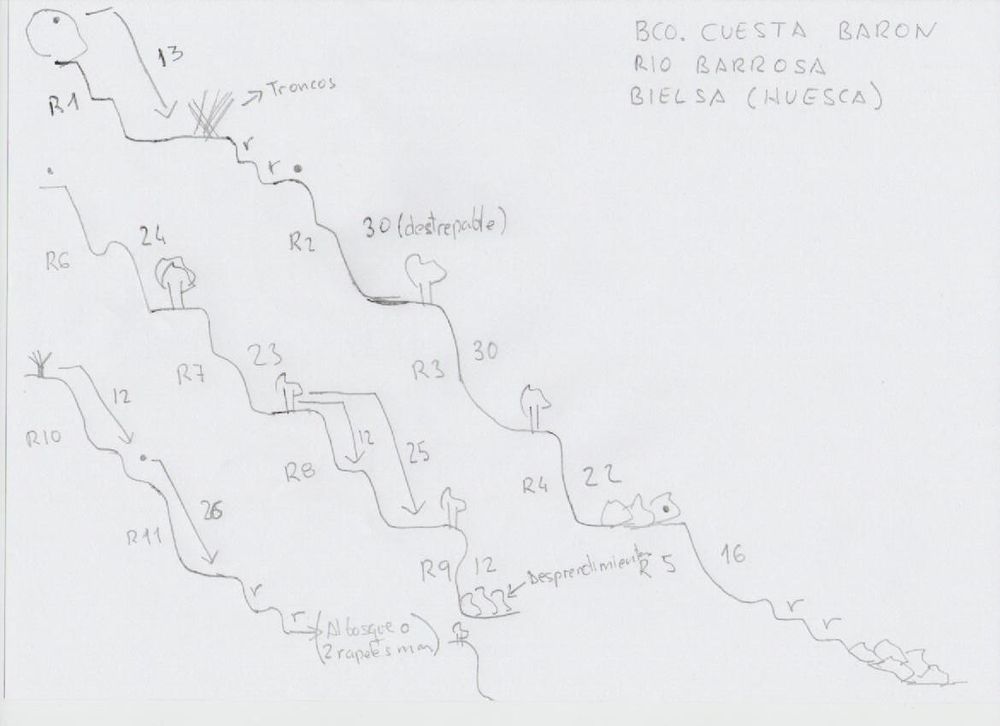 BCO. CUESTA BARON
RIO BARROSA
BIELSA (HUESCA)
13
R1
Troncos
r
r
R2
30 (destrepable)
R3
30
R4
22
R5
16
r
r
R6
24
R7
23
R8
12
25
R9
12
Desprendimiento
R10
12
R11
26
r
r
(Al bosque o
(2 rapeles mas)